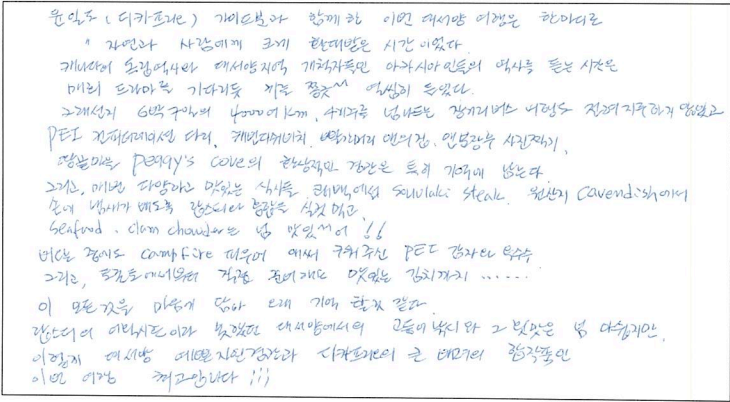 윤일도 (디카프리오) 가이드분과 함께 한 이번 대서양 여행은 한마디로
" 자연과 사람에게 크게 환대받은 시간 이었다.
캐나다의 독립역사와 대서양지역 개척자들인 아카시아인들의 역사를 듣는 시간은
매회 드라마를 기다리듯 귀를 쫑긋~~ 열씸히 들었다.
그래선지 6박 7일의 4000여 km, 4개주를 넘나드는 장거리버스 여행도 전혀 지루하지 않았고
PEI 컨피더레이션 다리, 빨강머리 앤의집, 앤 분장후 사진찍기,
땅끝마을 Peggy's cove의 환상적인 경관은 특히 기억에 남는다.
그리고, 매번 다양하고 맛있는 식사들 퀘백에서 souvlaki steak, 원산지 cavendish에서
손에 냄새가 배도록 랍스터와 홍합을 실컷 먹고
Seafood . clam chowder는 넘 맛있써어 !!
비오는 중에도 campfire 피우며 애써 구워주신 PEI 감자와 옥수수
그리고, 토론토에서부터 직접 가져온 맛있는 김치까지 ......
이 모든것을 마음에 담아 오래 기억 할것 같다.
대서양에서의 고등어 낚시와 그 넘 아쉽지만,
이렇게 대서양 예쁜 자연경관과 디카프리오의 큰 합작품인
이번 여행 최고입니다 !!!